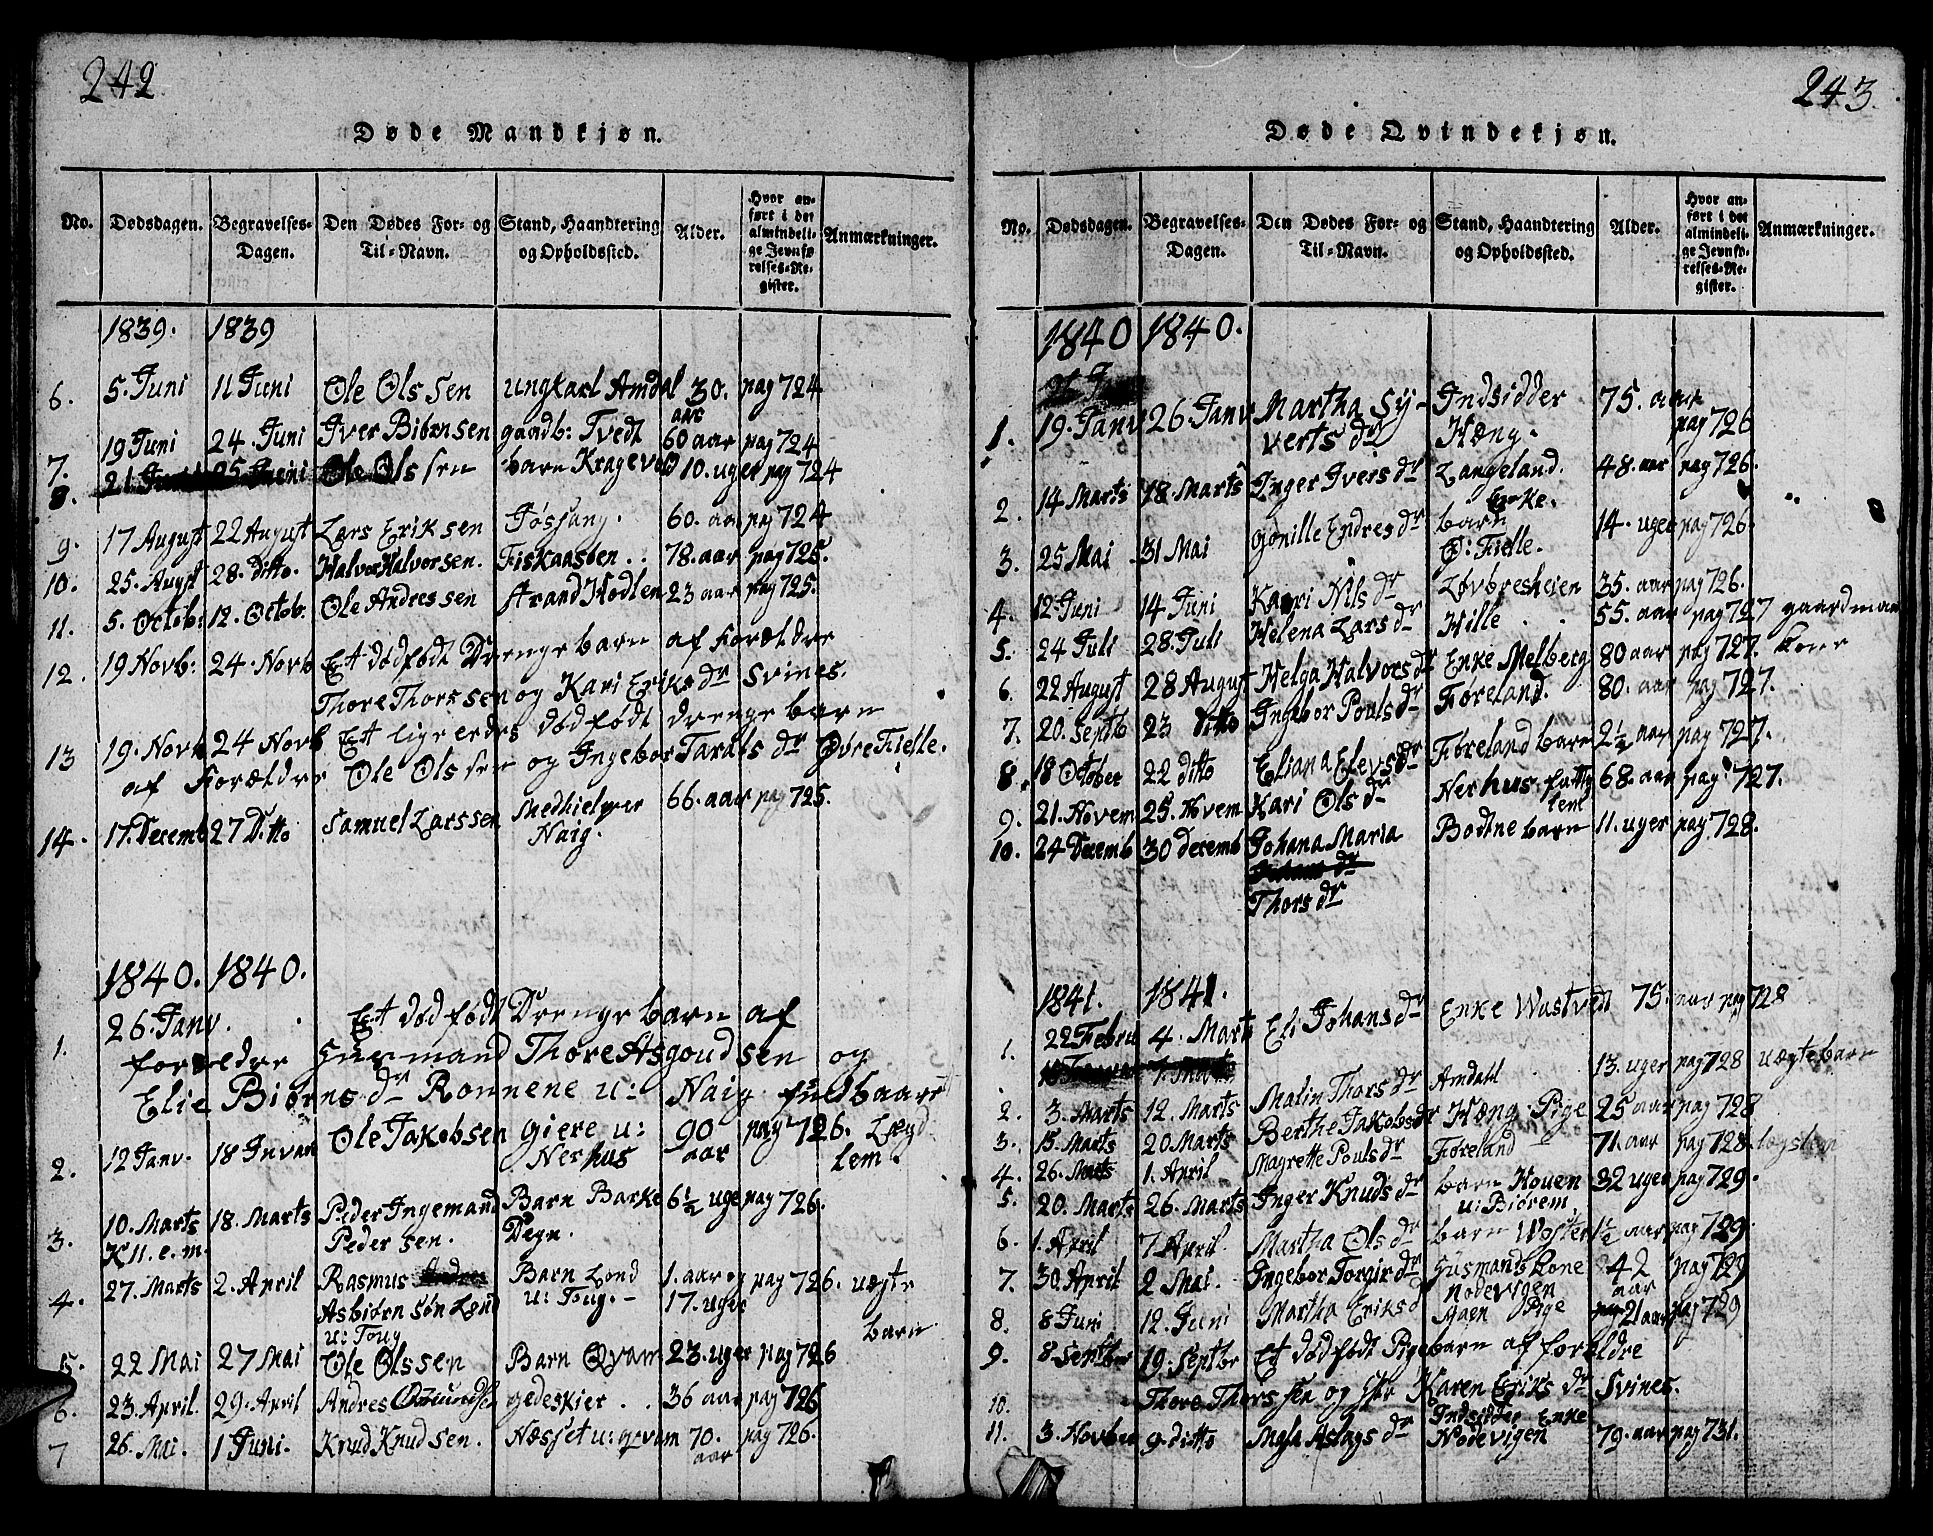 242
Døde Mandkjøn.
No. Dødsdagen. Begravelses-Dagen. Den Dødes For- og Til-Navn. Stand, Haandtering og Opholdssted. Alder. Hvor anført i det almindelige Jevnførelses-Register. Anmærkninger.
1839. 1839
6. 5. Juni 11 Juni Ole Olssen ungkarl Amdal 30. aar pag 724
7. 19 Juni 24. Juni Iver Biørnsen gaardb: Tvedt 60 aar pag 724
8. 21 Juni 25 Juni Ole Olssen barn Kragevold 10. uger pag 724
9. 17 August 22 August Lars Eriksen Jøssang. 60. aar pag 724
10. 25. Augst 28. ditto. Halvor Halvorsen. Fiskaaen . . 78. aar pag 725.
11. 5. Octob: 12. Octob. Ole Andressen Arand Hodlen 23 aar pag 725.
12. 19 Novb: 24. Novb Et dødfødt Drenge barn af Forældre
Thore Thorssen og Kari Eriks dr Svines.
13 19. Novb 24 Novb Et ligeledes dødfødt drenge barn
af Forældre Ole Olssen og Ingebor Tarals dr Øvre Fielle.
14. 17. Decemb 27 Ditto Samuel Larssen Medhielper 66. aar pag 725.
Naig.
1840. 1840.
1. 26. Janv. Et dødfødt Drenge barn af
forældre Huusmand Thore Asgoudsen og
Elie Biørns dr Rønnene u: Naig fuldbaaret
2. 12 Janv. 18 Janvar Ole Jakobsen giere u: 90 pag 726. Lægd
Nerhus aar lem.
3. 10. Marts 18. Marts Peder Ingemand Barn Barke 6½ uge pag 726.
K 11. e. m. Pedersen. Degn.
4. 27. Marts 2. April Rasmus Barn Lond 1. aar og pag 726. uægte
Asbiørnsøn Lønd u: Toug. 17. uger barn
u: Toug
5. 22 Mai 27 Mai Ole Olssen Barn Qvam 23. uger pag 726
6. 23. April. 29. April Andres Omundsen gedeskier . . 36 aar pag 726
7 26. Mai. 1 Juni. Knud Knudsen. Næsset u: qvam 70. aar pag 726.
243.
Døde Qvindekjøn.
No. Dødsdagen. Begravelses-Dagen. Den Dødes For- og Til-Navn. Stand, Haandtering og Opholdssted. Alder. Hvor anført i det almindelige Jevnførelses-Register. Anmærkninger.
1840 1840.
1. 19. Janv 26. Janv Martha Sy- Indsidder 75. aar
verts dr Hæng. pag 726
2. 14 Marts 18. Marts Inger Ivers dr Langeland. 48. aar pag 726.
Enke.
3. 25 Mai 31 Mai Gønille Endres dr barn 14. uger pag 726.
Ø: Fielle.
4. 12 Juni 14 Juni Kari Nils dr Løvbresheien 35. aar pag 726.
5. 24 Juli 28. Juli Helena Lars dr Hille . . 55. aar pag 727 gaardman
6. 22 August 28 August Helga Halvors dr Enke Melberg 80 aar pag 727. kone
7. 20. Septb 23 ditto Ingebor Pouls dr Føreland. 80. aar pag 727.
8. 18 October 22 ditto Eliana Elevs dr Føreland barn 2½ aar pag 727.
9. 21. Novem 25. Novem Kari Ols dr Nerhus fattig 68. aar pag 727.
lem
10. 24 Decemb 30 decemb Johana Maria Bodtne barn 11. uger pag 728.
Thors dr
1841. 1841.
1. 22 Febru 4. Marts Eli Johans dr Enke Wustvedt 75. aar pag 728
2. 3. Marts 12. Marts Malin Thors dr Amdahl 13. uger pag 728 uægte barn
3. 15. Marts 20 Marts Berthe Jakobs dr Hæng Pige 25 aar pag 728
4. 26. Marts 1. April Magrette Pouls dr Føreland 71. aar pag 728. lægslem
5. 20. Marts 26. Marts Inger Knuds dr barn Houen 32 uger pag 729.
u: Biørem
6. 1. April 7 April. Martha Ols dr barn Woster 1½ aar pag 729.
7. 30. April 2 Mai. Ingebor Torgir dr Husmants kone 42 pag 729
Nodevigen aar
8. 8 Juni 12. Juni Martha Eriks d Maen Pige 21 aar pag 729
9. 8 Septbr 19. Septbr Et dødfødt Pige barn af forældre
10. Thore Thorssen og Karen Eriks dr Svines.
11. 3. Novber 9. ditto Mala Aslags dr Indsidder Enke 79. aar pag 731.
Nodevigen